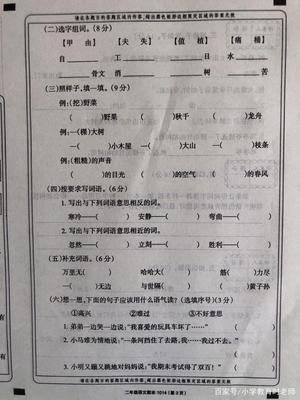 请在各题目的答题区域内作答,超出黑色矩形边框限定区域的答案无效
(二)选字组词。(8分)
【甲 由】 【夫 失】 【值 植】 【痛 桶】
自____ 工____ ____日 水____
____骨文 ____消 ____树 ____苦
(三)照样子,填一填。(9分)
例:(挖)野菜
( )野果 ( )秋千 ( )龙舟
例:(一棵)大树
( )小木屋 ( )大山 ( )枝条
例:(粗糙)的声音
( )的目光 ( )的空气 ( )的春风
(四)按要求写词语。(6分)
1. 写出与下列词语意思相反的词。
寒冷——( ) 安静——( ) 弯曲——( )
2. 写出与下列词语意思相近的词。
忽然——( ) 立刻——( ) 胜利——( )
(五)补充词语。(6分)
万里无( ) 哈哈大( ) 筋( )力尽
( )一无边 与世隔( ) ( )黄子孙
(六)想一想,下面的句子应该用什么语气读?(选填序号)(3分)
①高兴 ②难过 ③不好意思
1. 弟弟一边哭一边说:“我喜爱的玩具车坏了……” ( )
2. 小马难为情地说:“一条河挡住了去路,我……我过不去。”
( )
3. 小明又蹦又跳地对妈妈说:“我期末考试得了双百!” ( )
请在各题目的答题区域内作答,超出黑色矩形边框限定区域的答案无效
二年级语文期末·1014(第2页)
百家号/小学教育时老师